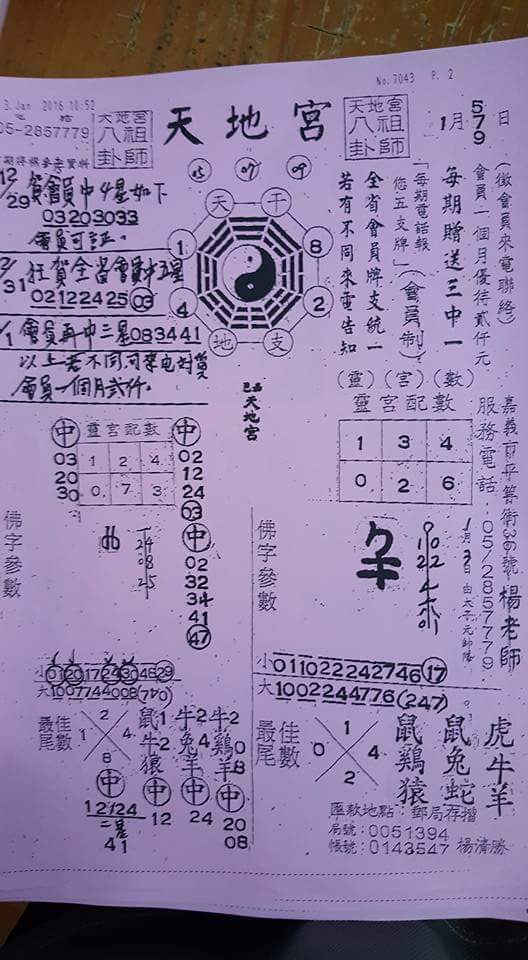 No. 7043 P. 2
3. Jan 2016 10:52
05-2857779
天地宮
八祖
卦師
天地宮
天地宮
八祖
卦師
1月
5
7
9
日
05
07
09
12/29 賀會員中4星如下
03203033
會員可証。
31 狂賀全省會員中五星
02122425 03
1 會員再中三星083441
以上若不同可來电对質
會員一個月弍仟。
天
干
1
8
4
2
地
支
(徵會員來電聯絡)
會員一個月優待貳仟元
每期贈送三中一
「每期電話報
您五支牌」(會員制)
全省會員牌支統一
若有不同來電告知
天地宮
(靈)(宮)(數)
靈宮配數
1 3 4
0 2 6
嘉義市
36號 楊老師
服務電話:05/2857779
中
03
20
30
靈宮配數
1 2 4
0 7 3
中
02
12
24
03
中
02
32
34
41
47
佛字參數
24
08
25
佛字參數
小 01201724304829
大 1007744008(740)
小 011022242746 17
大 1002244776(247)
最佳
尾數
2
1 4
8
鼠1 牛2 牛2
牛2 兔4 鷄0
猿 羊 羊8
中
12/24
二星
41
中
12
中
24
中
20
08
最佳
尾數
1
0 4
2
鼠 鼠 虎
鷄 兔 牛
猿 蛇 羊
匯款地點:郵局存摺
局號:0051394
帳號:0143547 楊清勝